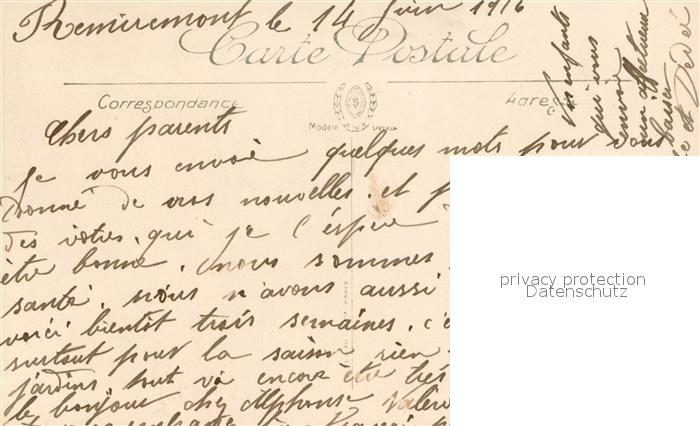 Remiremont le 14 Juin 1916
Carte Postale
Correspondance
Adresse
Modèle
Chers parents
Je vous envoie quelques mots pour vous
donné de vos nouvelles. et
des votres, qui je l'éspère
être bonne. nous sommes
santé, nous n'avons aussi
voici bientot trois semaines. c'
surtout pour la saison rien
jardins, tout va encore être trés
le bonjour chez Alphonse
Vos enfants
qui vous
envoie
un affectueux
baiser
et Dédé
privacy protection
Datenschutz